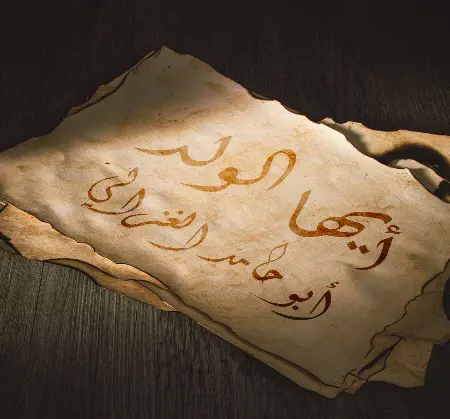 أيها الولد
أبو حامد الغزالي